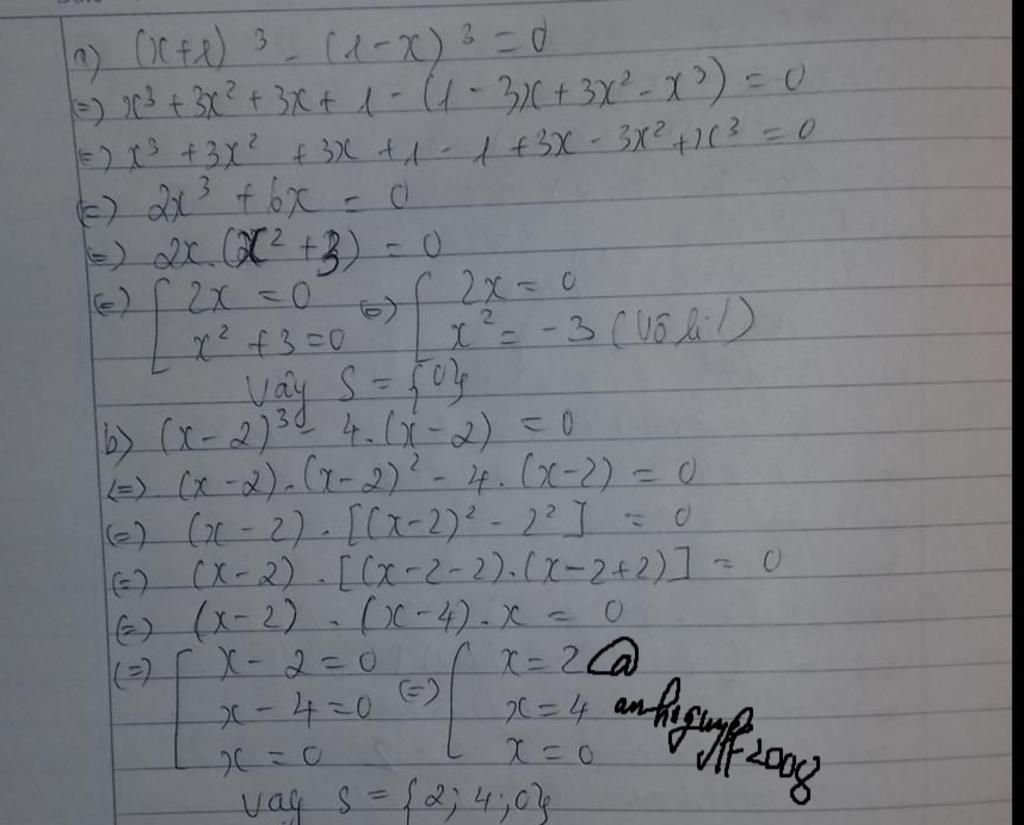 a) (x+1)³ - (1-x)³ = 0
<=> x³ + 3x² + 3x + 1 - (1 - 3x + 3x² - x³) = 0
<=> x³ + 3x² + 3x + 1 - 1 + 3x - 3x² + x³ = 0
<=> 2x³ + 6x = 0
<=> 2x.(x² + 3) = 0
<=> [ 2x = 0 <=> [ 2x = 0
x² + 3 = 0 x² = -3 (vô lí!)
Vậy S = {0}
b) (x-2)³ - 4.(x-2) = 0
<=> (x-2).(x-2)² - 4.(x-2) = 0
<=> (x-2).[(x-2)² - 2²] = 0
<=> (x-2).[(x-2-2).(x-2+2)] = 0
<=> (x-2).(x-4).x = 0
<=> [ x-2 = 0 <=> [ x = 2 @
x-4 = 0 x = 4
x = 0 x = 0
Vậy S = {2; 4; 0}